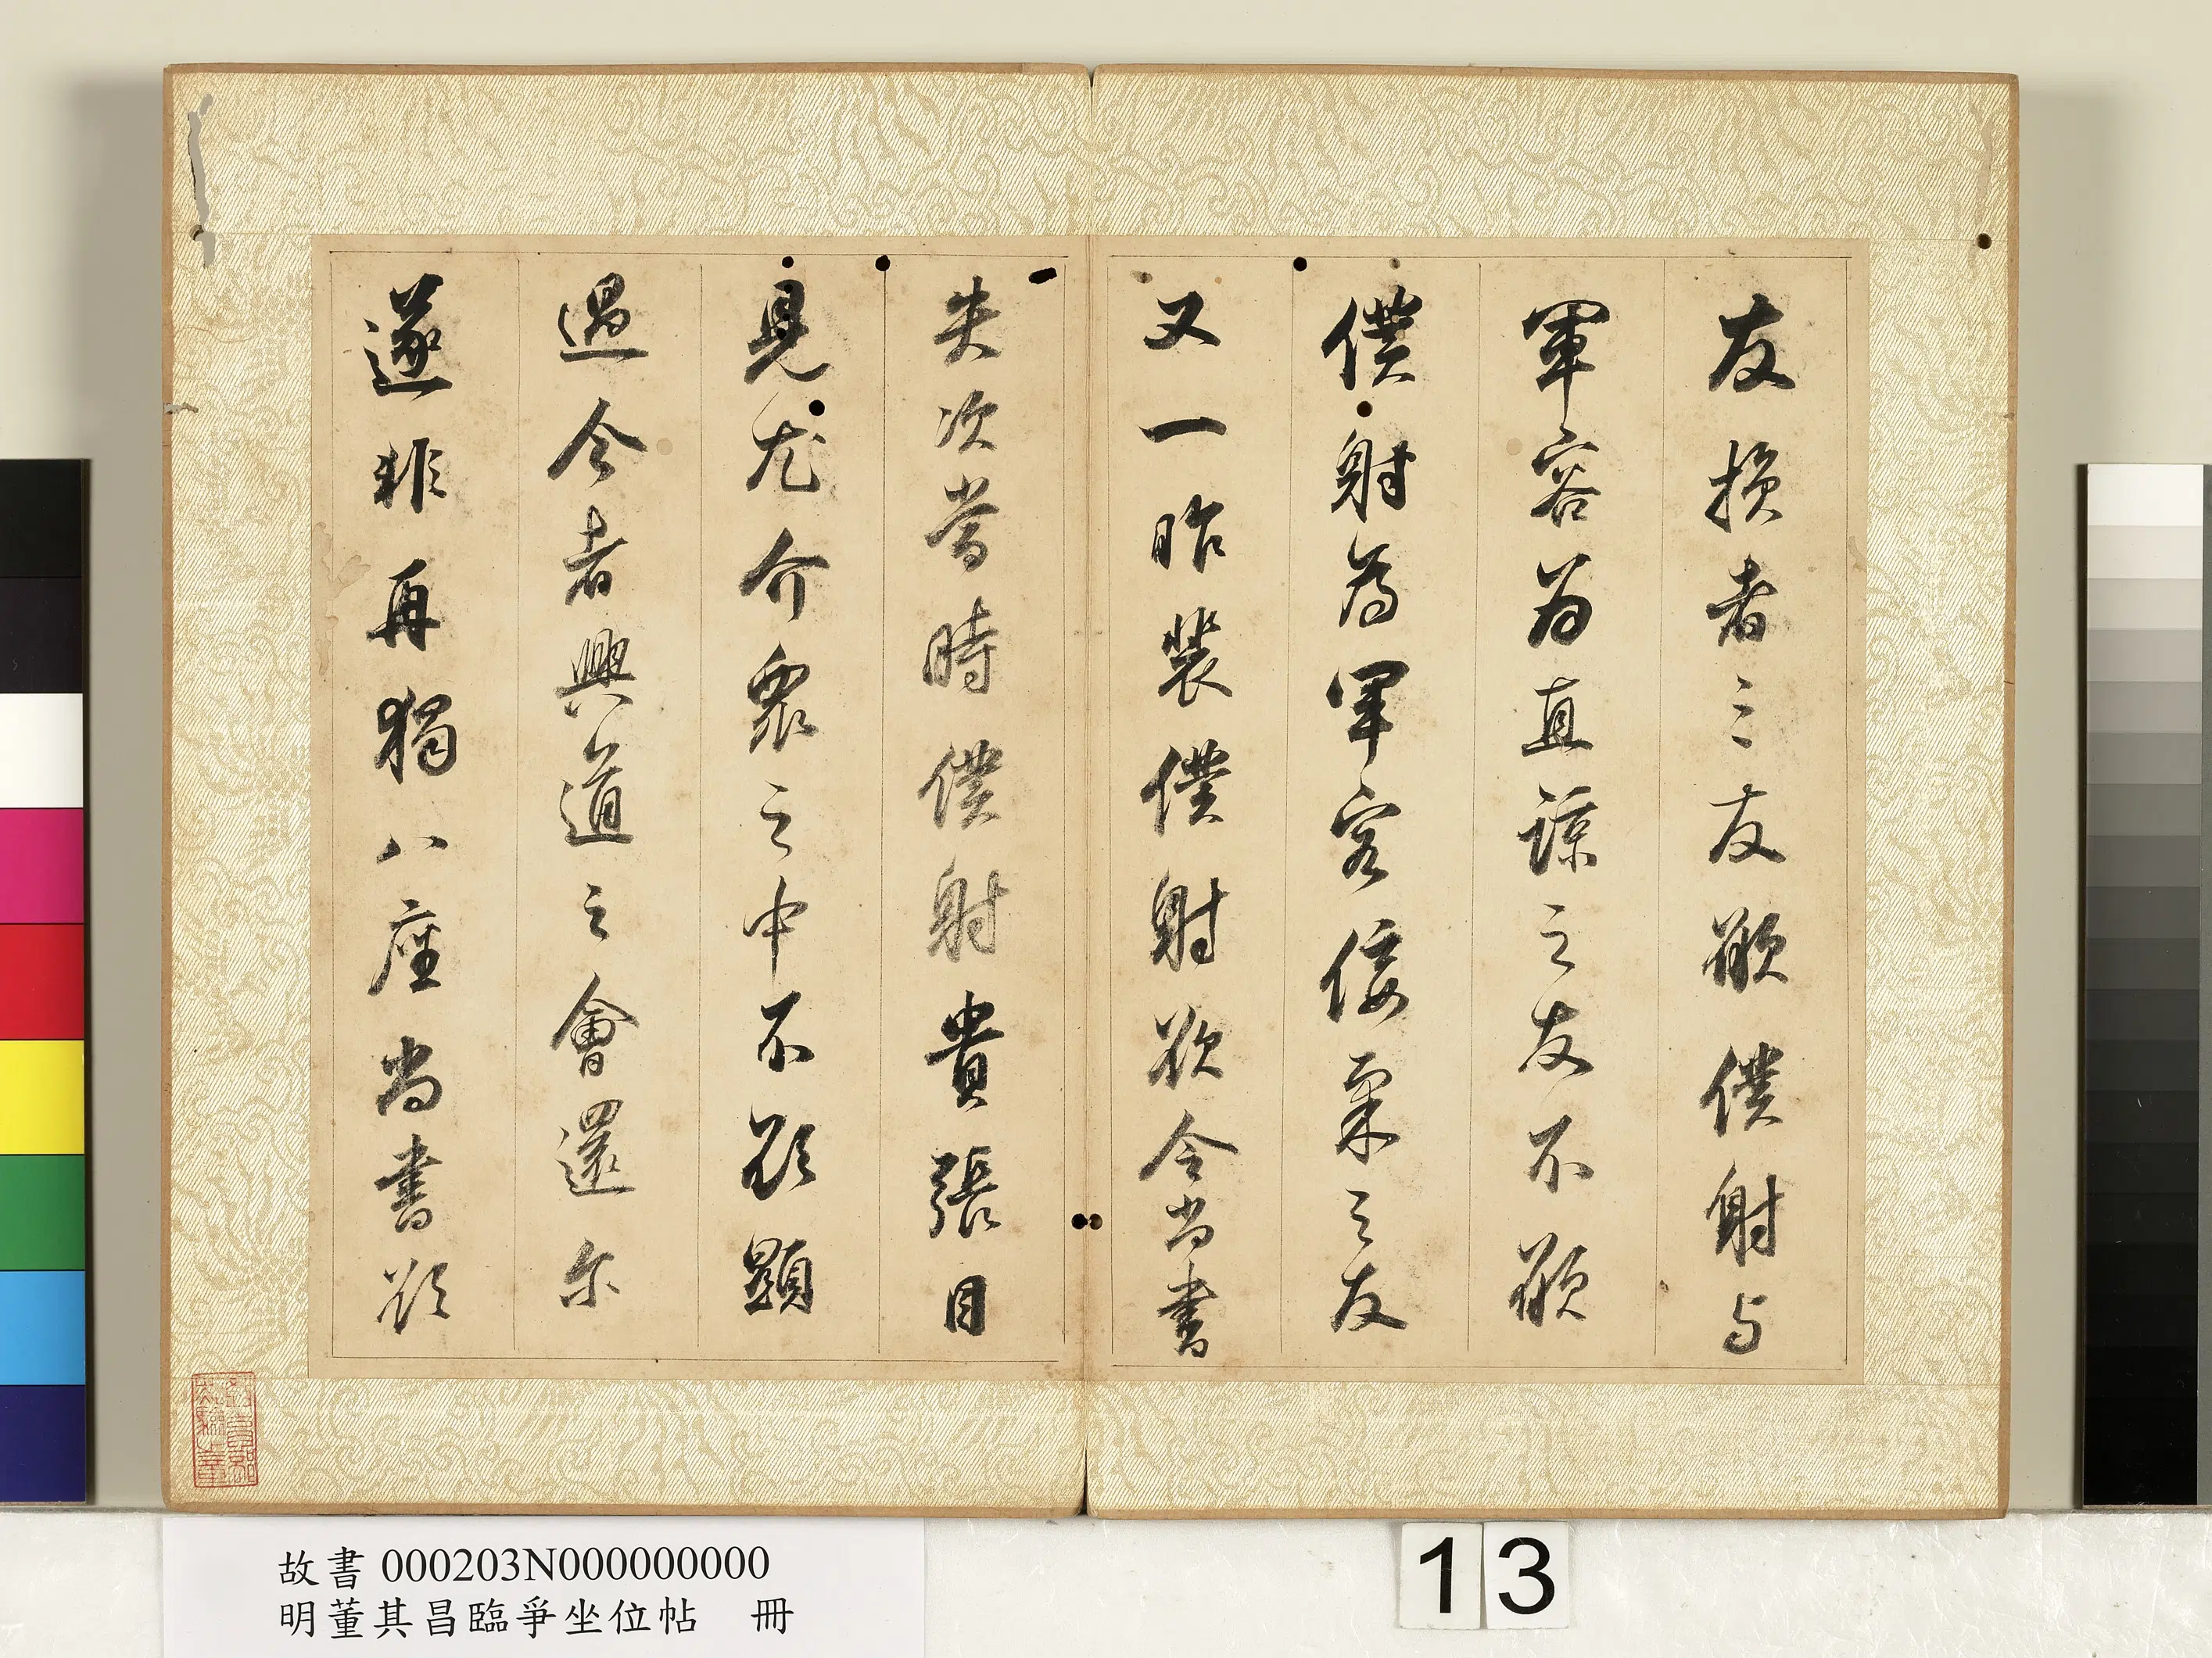 友損者三友願僕射与
軍容為直諒之友不願
僕射為軍容佞柔之友
又一昨裴僕射欲令尚書
失次當時僕射貴張目
見尤介眾之中不欲顯
過今者興道之會還尔
遂非再猲八座尚書欲
教育部點驗之章
故書 000203N000000000
明董其昌臨爭坐位帖 冊
13